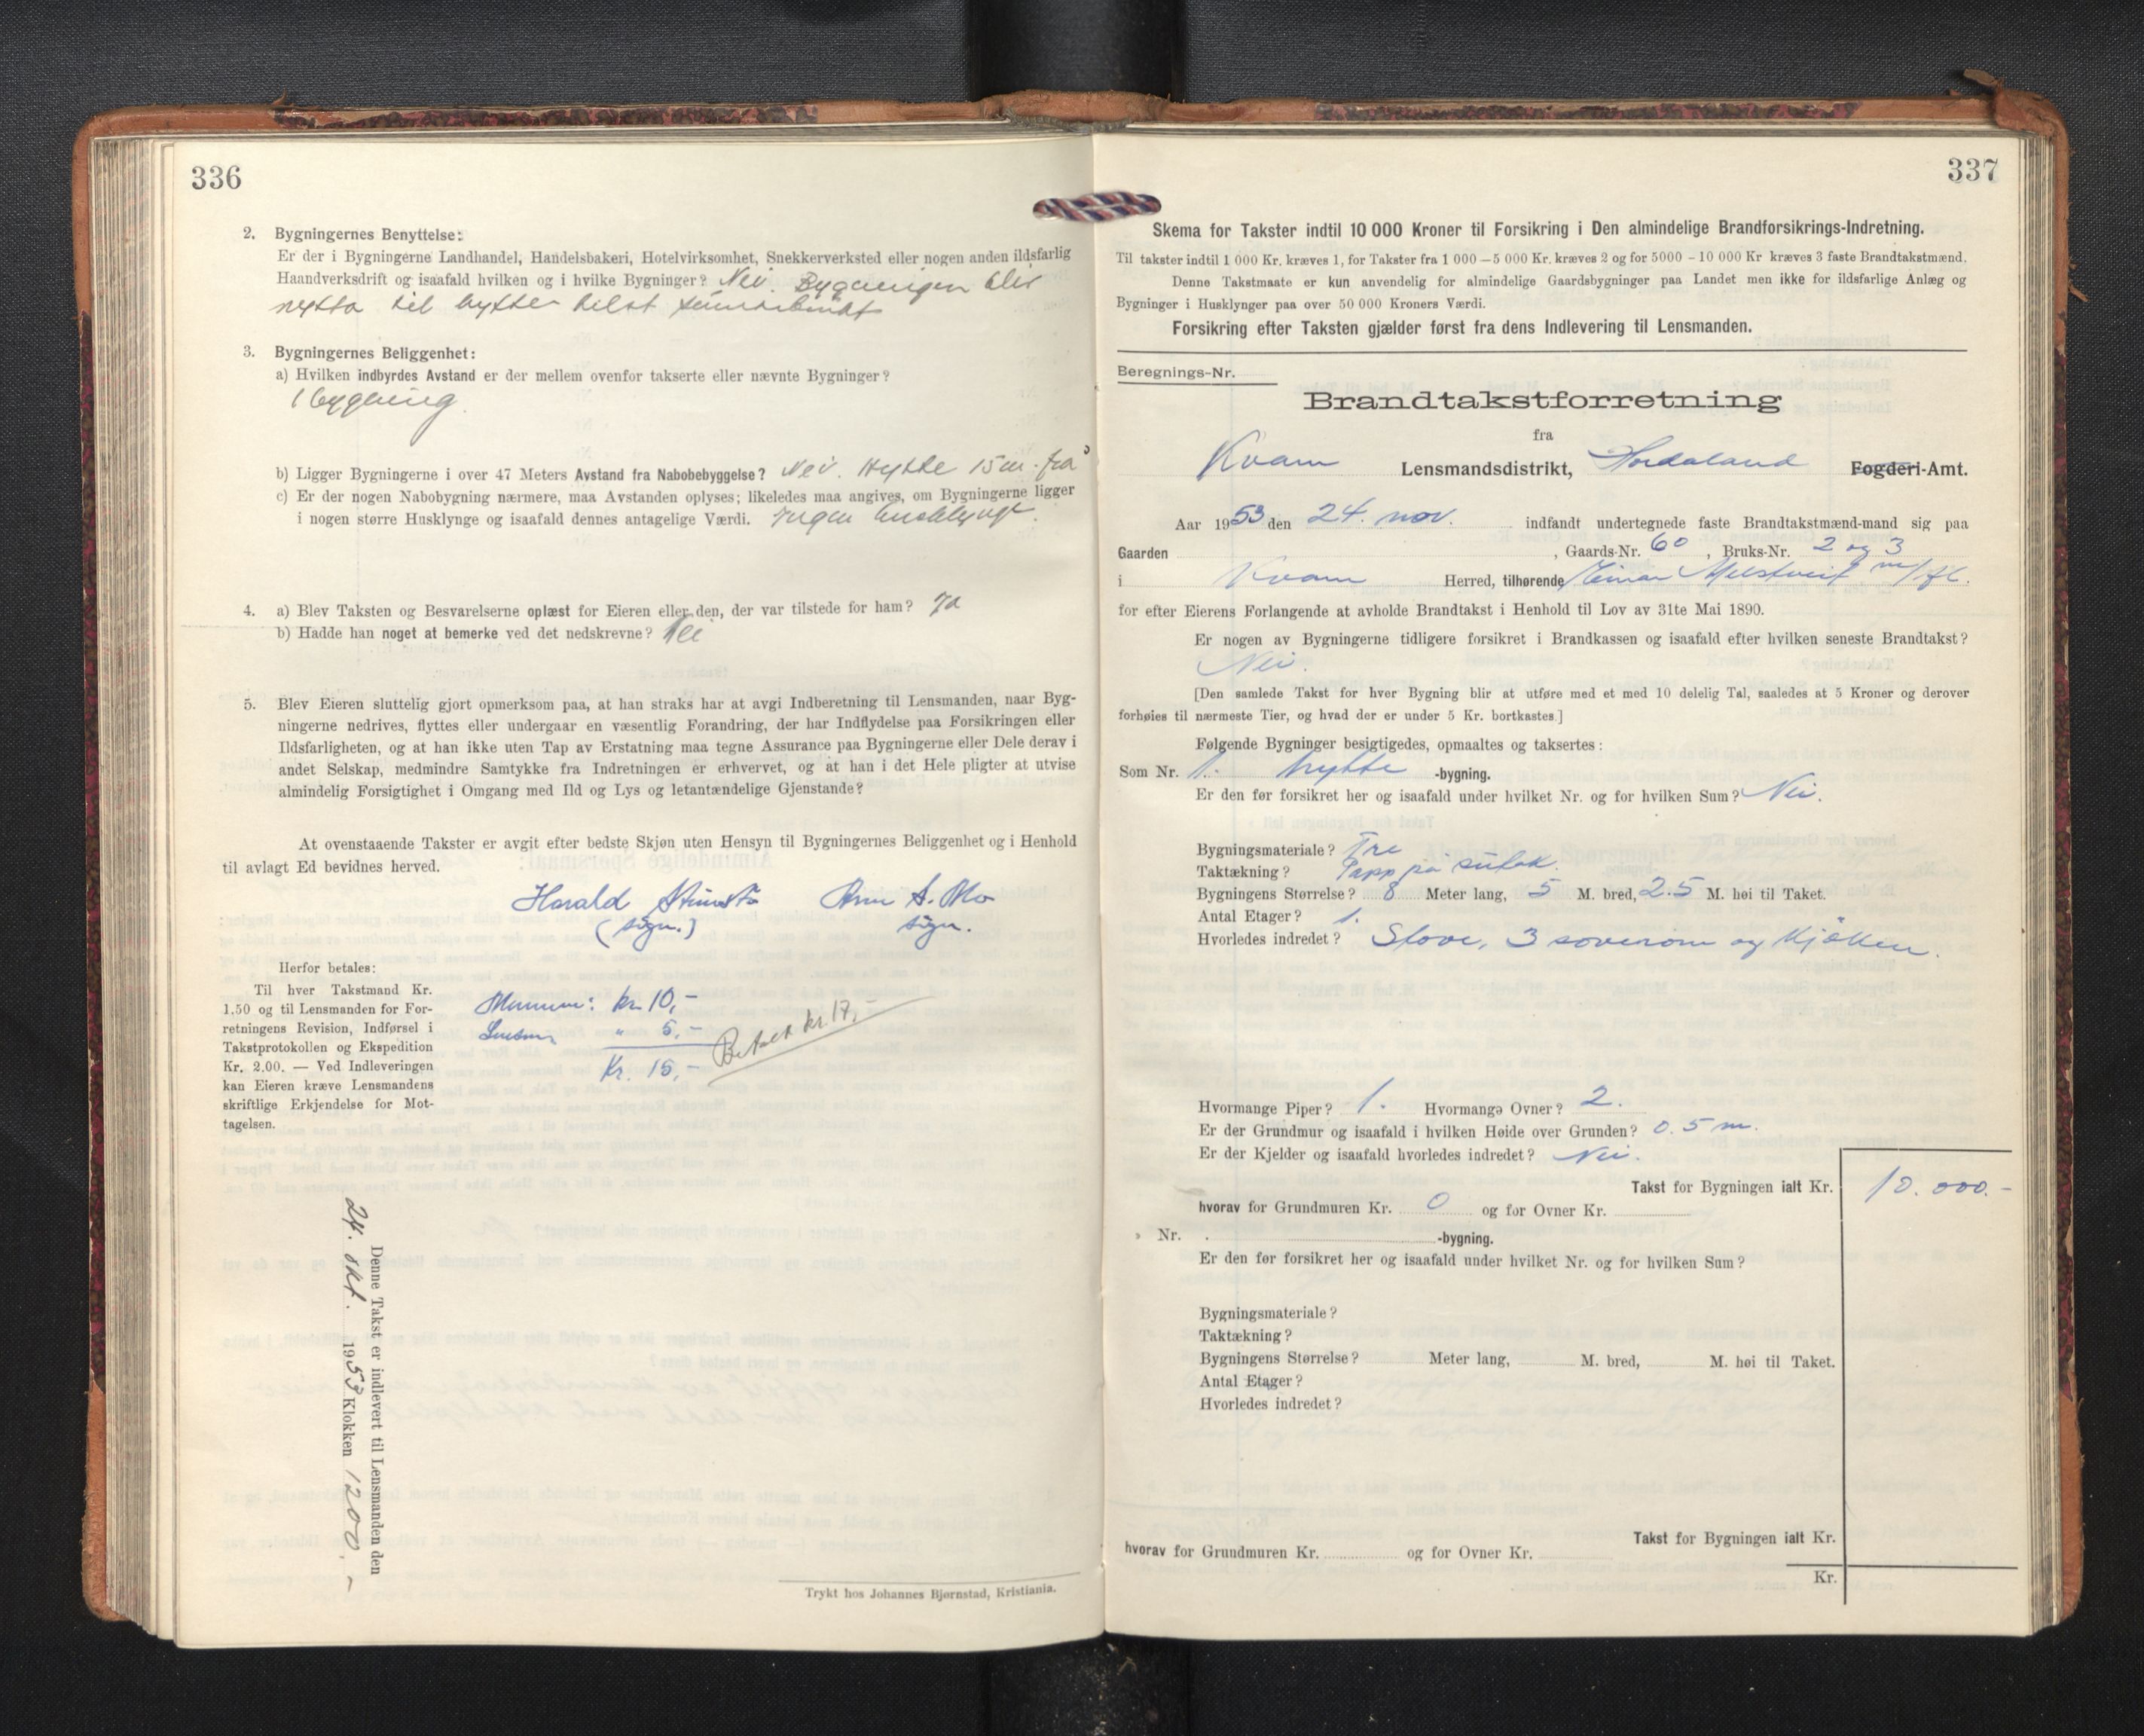 336
2. Bygningernes Benyttelse:
Er der i Bygningerne Landhandel, Handelsbakeri, Hotelvirksomhet, Snekkerverksted eller nogen anden ildsfarlig
Haandverksdrift og isaafald hvilken og i hvilke Bygninger? Nei. Bygningen blir
nytta til hytte helst
3. Bygningernes Beliggenhet:
a) Hvilken indbyrdes Avstand er der mellem ovenfor takserte eller nævnte Bygninger?
1 bygning
b) Ligger Bygningerne i over 47 Meters Avstand fra Nabobebyggelse? Nei. Hytte 15 m. fra
c) Er der nogen Nabobygning nærmere, maa Avstanden oplyses; likeledes maa angives, om Bygningerne ligger
i nogen større Husklynge og isaafald dennes antagelige Værdi. Ingen husklynge.
4. a) Blev Taksten og Besvarelserne oplæst for Eieren eller den, der var tilstede for ham? Ja
b) Hadde han noget at bemerke ved det nedskrevne? Nei
5. Blev Eieren sluttelig gjort opmerksom paa, at han straks har at avgi Indberetning til Lensmanden, naar Byg-
ningerne nedrives, flyttes eller undergaar en væsentlig Forandring, der har Indflydelse paa Forsikringen eller
Ildsfarligheten, og at han ikke uten Tap av Erstatning maa tegne Assurance paa Bygningerne eller Dele derav i
andet Selskap, medmindre Samtykke fra Indretningen er erhvervet, og at han i det Hele pligter at utvise
almindelig Forsigtighet i Omgang med Ild og Lys og letantændelige Gjenstande?
At ovenstaaende Takster er avgit efter bedste Skjøn uten Hensyn til Bygningernes Beliggenhet og i Henhold
til avlagt Ed bevidnes herved.
Harald Arne A. Mo
(sign.) sign.
Herfor betales:
Til hver Takstmand Kr.
1.50 og til Lensmanden for For-
retningens Revision, Indførsel i
Takstprotokollen og Ekspedition
Kr. 2.00. — Ved Indleveringen
kan Eieren kræve Lensmandens
skriftlige Erkjendelse for Mot-
tagelsen.
kr. 10,-
" 5,-
Kr. 15,-
Betalt kr. 17,-
Denne Takst er indlevert til Lensmanden den
24. okt. 1953 Klokken 1200.-
Trykt hos Johannes Bjørnstad, Kristiania.
337
Skema for Takster indtil 10 000 Kroner til Forsikring i Den almindelige Brandforsikrings-Indretning.
Til takster indtil 1 000 Kr. kræves 1, for Takster fra 1 000—5 000 Kr. kræves 2 og for 5000 - 10 000 Kr kræves 3 faste Brandtakstmænd.
Denne Takstmaate er kun anvendelig for almindelige Gaardsbygninger paa Landet men ikke for ildsfarlige Anlæg og
Bygninger i Husklynger paa over 50 000 Kroners Værdi.
Forsikring efter Taksten gjælder først fra dens Indlevering til Lensmanden.
Beregnings-Nr.
Brandtakstforretning
fra
Kvam Lensmandsdistrikt, Hordaland Fogderi-Amt.
Aar 1953 den 24. nov. indfandt undertegnede faste Brandtakstmænd-mand sig paa
Gaarden , Gaards-Nr. 60 , Bruks-Nr. 2 og 3
i Kvam Herred, tilhørende Einar m/fl.
for efter Eierens Forlangende at avholde Brandtakst i Henhold til Lov av 31te Mai 1890.
Er nogen av Bygningerne tidligere forsikret i Brandkassen og isaafald efter hvilken seneste Brandtakst?
Nei.
[Den samlede Takst for hver Bygning blir at utføre med et med 10 delelig Tal, saaledes at 5 Kroner og derover
forhøies til nærmeste Tier, og hvad der er under 5 Kr. bortkastes.]
Følgende Bygninger besigtigedes, opmaaltes og taksertes:
Som Nr. 1. hytte -bygning.
Er den før forsikret her og isaafald under hvilket Nr. og for hvilken Sum? Nei.
Bygningsmateriale? Tre
Taktækning? Papp på sutak.
Bygningens Størrelse? 8 Meter lang, 5 M. bred, 2.5 M. høi til Taket.
Antal Etager? 1.
Hvorledes indredet? Stove, 3 soverom og kjøken.
Hvormange Piper? 1. Hvormange Ovner? 2.
Er der Grundmur og isaafald i hvilken Høide over Grunden? 0.5 m.
Er der Kjelder og isaafald hvorledes indredet? Nei.
Takst for Bygningen ialt Kr. 10.000.-
hvorav for Grundmuren Kr. 0 og for Ovner Kr.
Nr. -bygning.
Er den før forsikret her og isaafald under hvilket Nr. og for hvilken Sum?
Bygningsmateriale?
Taktækning?
Bygningens Størrelse? Meter lang, M. bred, M. høi til Taket.
Antal Etager?
Hvorledes indredet?
Takst for Bygningen ialt Kr.
hvorav for Grundmuren Kr. og for Ovner Kr.
Kr.